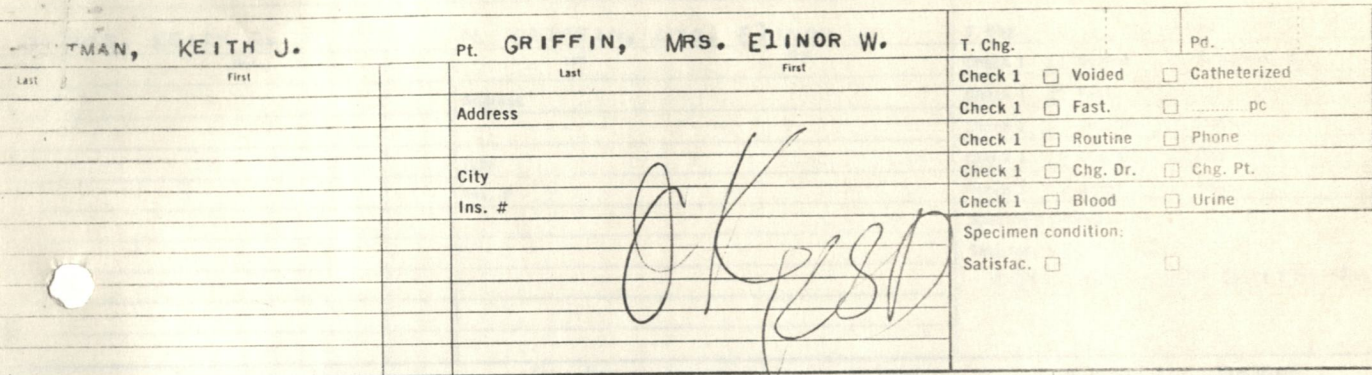 TMAN, KEITH J.
Last First
Pt. GRIFFIN, MRS. ElINOR W.
Last First
Address
City
Ins. #
OK
T. Chg. Pd.
Check 1 ☐ Voided ☐ Catheterized
Check 1 ☐ Fast. ☐ .......... pc
Check 1 ☐ Routine ☐ Phone
Check 1 ☐ Chg. Dr. ☐ Chg. Pt.
Check 1 ☐ Blood ☐ Urine
Specimen condition:
Satisfac. ☐ ☐